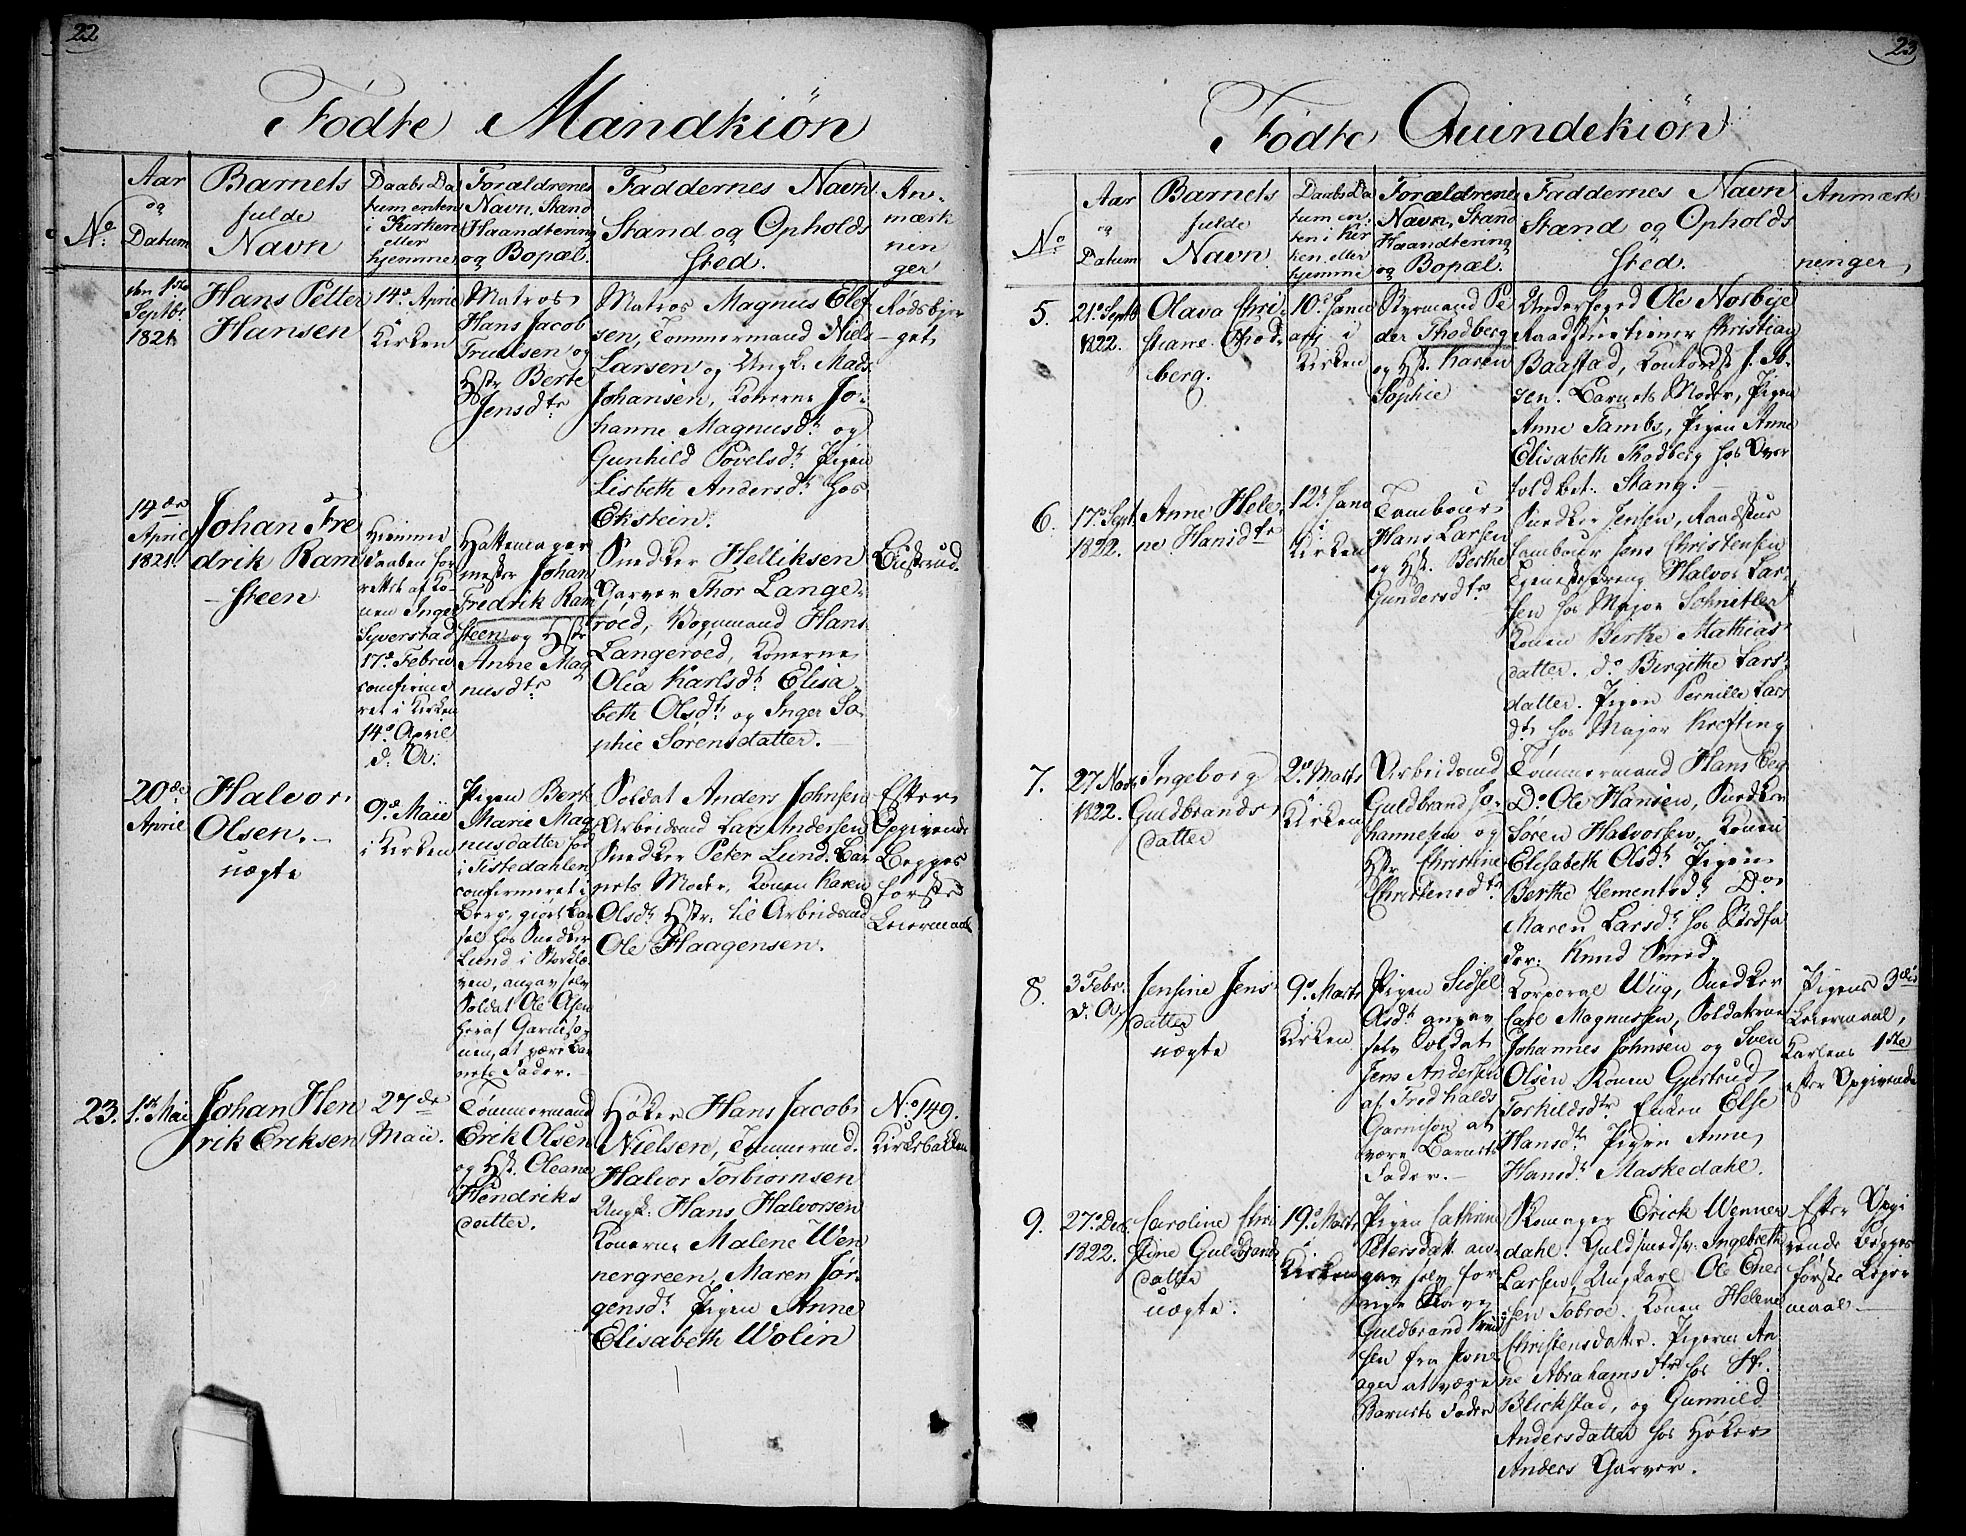 22
Födte Mandkiön
No.
Aar
og
Datum
Barnets
fulde
Navn
Daabs Da
tum enten
i Kirken
eller
hjemme
Forældrenes
Navn, Stand
Haandtering
og Bopæl.
Faddernes Navn
Stand og Opholds
sted.
An-
mærk
nin
ger
den 1ste
Septbr
1821
Hans Petter
Hansen
14de April
i
Kirken
Matros
Hans Jacob
Truelsen og
Hstr Berte
Jensdtr
Matros Magnus Elof
sen, Tømmermand Niels
Larsen og Ungk. Mads
Johansen, Konerne Jo-
hanne Magnusdtr og
Gunhild Povelsdtr Pigen
Lisbeth Andersdtr hos
Ekstein.
Rødsbjer
get
14de
April
1821
Johan Fre
drik Ram
steen
Hjemme
daaben for
rettet af Ko-
nen Inger
Syverstad
17de Febru
confirme
ret i Kirken
14de April
d. A.
Hattemager
mester Johan
Fredrik Ram
steen og Hstr
Anne Mag
nusdtr
Snedker Helliksen
Garver Thor Lange-
röed, Vognmand Hans
Langeröed, Konerne
Olea Karlsdtr Elisa
beth Olsdtr og Inger So-
phie Sørensdatter.
20de
April
Halvor
Olsen.
uægte
9de Maii
i Kirken
Pigen Berte
Marie Mag
nusdatter fød
i Tistedahlen
confirmeret i
Berg, giort Bar
sel hos Snedker
Lund i
angav selv
Soldat Ole Olsen
heraf Garniso
nen, at være Bar
nets Fader.
Soldat Anders Johnsen
Arbeidsmd Lars Andersen
Snedker Peter Lund. Bar
nets Moder, Konen Karen
Olsdtr Hstr. til Arbeidsmd
Ole Haagensen.
Efter
Opgivende
Begges
første
Leiermaal
23.
1ste Maii
Johan Hen
rik Eriksen
27de
Maii.
Tømmermand
Erik Olsen
og Hst. Oleane
Hendriks
datter.
Høker Hans Jacob
Nielsen, Tømmermd.
Halvor Torbiørnsen
Ungk. Hans Halvorsen
Konerne Malene Wen
nergreen, Maren Jør-
gensdtr Pigen Anne
Elisabeth Wolin
No. 149.
Kirkebakken
23
Födte Quindekiön
No
Aar
og
Datum
Barnets
fulde
Navn
Daabs Da
tum en-
ten i Kir
ken eller
hjemme
Forældrene
Navn, Stand
Haandtering
og Bopæl.
Faddernes Navn
Stand og Opholds
sted.
Anmærk
ninger
5.
21de Septb
1822.
Olava Chri-
stiane Thod-
berg.
10de Janu
arii i
Kirken
Styrmand Pe
der Thodberg
og Hst. Karen
Sophie
Underfoged Ole Norbye
Raadstuetiener Christian
Baastad, Kontorist J. Ib-
sen. Barnets Moder, Pigen
Anne Tambs, Pigen Anne
Elisabeth Thodberg hos Over
toldbet. Stang.
6.
17de Sept.
1822.
Anne Hele-
ne Hansdtr
12de Janu
i
Kirken
Tambour
Hans Larsen
og Hst. Berthe
Gundersdtr
Snedker Jensen, Raadstue
tambour Jens Christensen
Tienestedreng Halvor Lar-
sen hos Major Schnitler
Konen Berthe Mathias
datter. do Birgithe Lars-
datter. Pigen Pernille Lars
dtr hos Major Krefting
7.
27 Novb
1822.
Ingeborg
Guldbrands
datter
2de Marts
i
Kirken
Arbeidsmd
Guldbrand Jo-
hannesen og
Hstr Christine
Christensdtr
Tømmermand Hans Berg
Do Ole Hansen, Snedker
Søren Halvorsen, Konen
Elisabeth Olsdtr Pigen
Berthe Clementsdtr Do
Maren Larsdtr hos
Knud Smed.
8.
3 Febr.
d. A.
Jensine Jens
datter
uægte
9de Marts
i
Kirken
Pigen Sidsel
Olsdtr angav
selv Soldat
Jens Andersen
af Fredhalds
Garnison at
være Barnets
Fader.
Korporal Wiig, Snedker
Carl Magnussen, Soldaterne
Johannes Johnsen og Sven
Olsen Konen Gjertrud
Torkildsdtr Enken Else
Hansdtr Pigen Anne
Hansdtr Maskedahl.
Pigens 3die
Leiermaal,
Karlens 1ste
efter Opgivende
9.
27de Dec.
1822.
Caroline Chri
stine Guldbrands
datter
uægte.
19de Marts
i
Kirken
Pigen Cathrine
Petersdatt. an-
gav selv for
rige Slave
Guldbrand
sen fra
ager at være
Barnets Fader
Skomager Erick Wenner
dahl. Guldsmedsv. Ingebreth
Larsen, Ungkarl Ole Ener
sen Tobroe. Konen Helene
Christensdatter. Pigerne An
ne Abrahamsdtr hos
Blickstad, og Gunnild
Andersdatter hos Høker
Anders Garver.
Efter Opgi
vende Begges
første Leier
maal